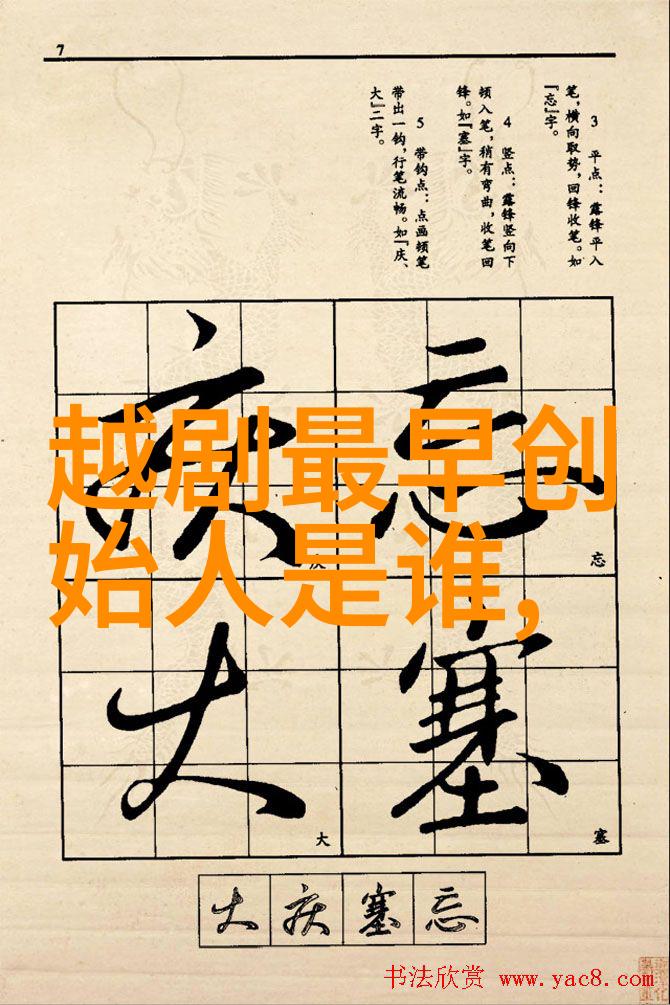 7
3　平点：露锋平入
笔，横向取势，回锋收笔。如
『忘』字。
4　竖点：露锋竖向下
顿入笔，稍有弯曲，收笔回
锋。如『塞』字。
5　带钩点：点画顿笔
带出一钩，行笔流畅。如『庆、
大』二字。
庆 忘
庆 忘
越剧最早创
始人是谁,
大 塞
大 塞
大 庆 塞 忘
书法欣赏 www.yac8.com